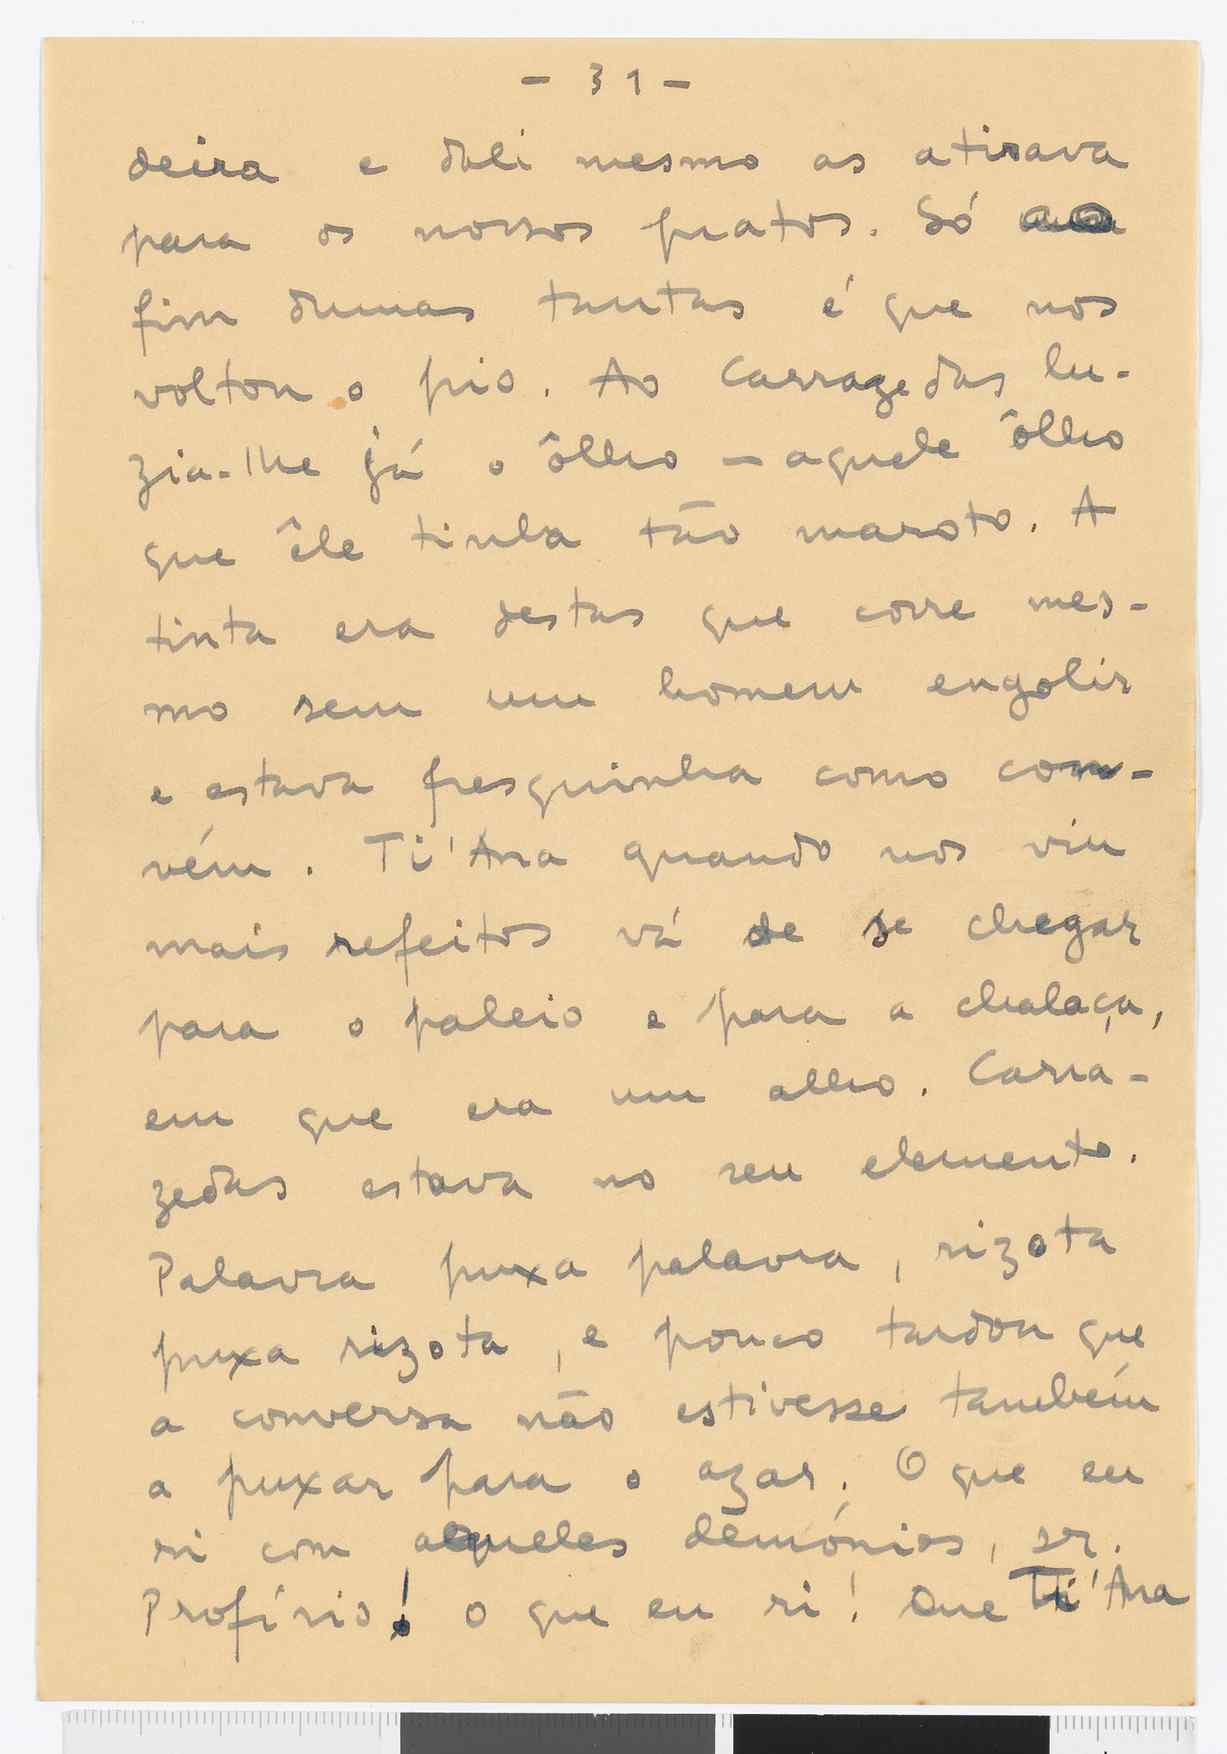 - 31 -
deira e dali mesmo as atirava
para os nossos pratos. Só ao
fim dumas tantas é que nos
voltou o pio. Ao Carrazedas lu-
zia-lhe já o ôlho - aquele ôlho
que êle tinha tão maroto. A
tinta era destas que corre mes-
mo sem um homem engolir
e estava fresquinha como con-
vém. Ti'Ana quando nos viu
mais refeitos vá de se chegar
para o paleio e para a chalaça,
em que era um alho. Carra-
zedas estava no seu elemento.
Palavra puxa palavra, rizota
puxa rizota, e pouco tardou que
a conversa não estivesse também
a puxar para o azar. O que eu
ri com aqueles demónios, sr.
Profírio! O que eu ri! Que Ti'Ana